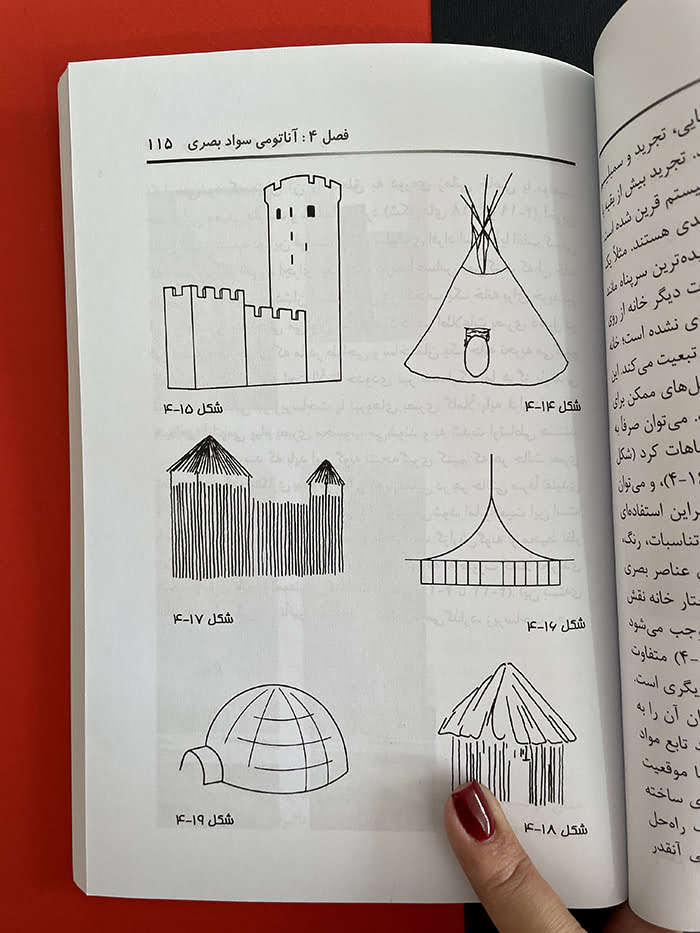 فصل ۴: آناتومی سواد بصری ۱۱۵
شکل ۱۴-۴
شکل ۱۵-۴
شکل ۱۶-۴
شکل ۱۷-۴
شکل ۱۸-۴
شکل ۱۹-۴
تجرید و سمبلیسم
تجرید بیش از بقیه با
یستم قرین شده است
ندی هستند. مثلاً یک
یده‌ترین سرپناه مانند
ت دیگر خانه از روی
ی نشده است؛ خانه
تبعیت می‌کند. این
ل‌های ممکن برای
می‌توان صرفاً به
باهات کرد (شکل
۴-۱۶)، و می‌توان
براین استفاده‌ای
تناسبات، رنگ،
عناصر بصری
ختار خانه نقش
وجب می‌شود
۴-) متفاوت
یگری است.
ان آن را به
تابع مواد
ا موقعیت
ی ساخته
راه‌حل
ی آنقدر